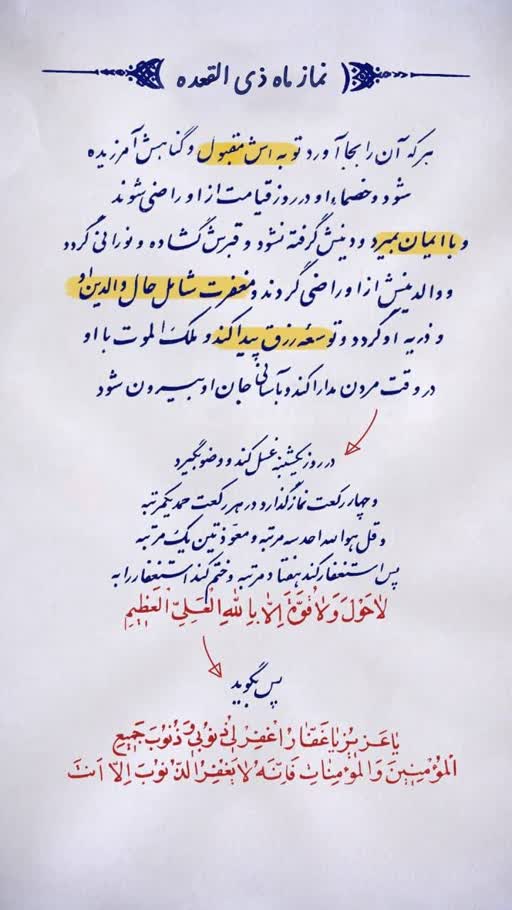 نماز ماه ذی القعده
هر که آن را بجا آورد توبه اش مقبول و گناهش آمرزیده
شود و خصماء او در روز قیامت از او راضی شوند
و با ایمان بمیرد و دینش گرفته نشود و قبرش گشاده و نورانی گردد
و والدینش از او راضی گردند و مغفرت شامل حال والدین او
و ذریه او گردد و توسعه رزق پیدا کند و ملک الموت با او
در وقت مردن مدارا کند و بآسانی جان او بیرون شود
در روز یکشنبه غسل کند و وضو بگیرد
و چهار رکعت نماز گذارد در هر رکعت حمد یکمرتبه
و قل هو الله احد سه مرتبه و معوذتین یک مرتبه
پس استغفار کند هفتاد مرتبه و ختم کند استغفار را به
لاٰحَوْلَ وَلاٰقُوَّةَ اِلاّٰ بِاللهِ الْعَلِیِّ الْعَظیٖمِ
پس بگوید
یاٰعَزیٖزُ یاٰغَفّٰارُ اغْفِرْ لیٖ ذُنُوبیٖ وَ ذُنُوبَ جَمیٖعِ
الْمُؤْمِنیٖنَ وَالْمُؤْمِنٰاتِ فَاِنَّهُ لاٰیَغْفِرُ الذُّنُوبَ اِلاّٰ اَنْتَ